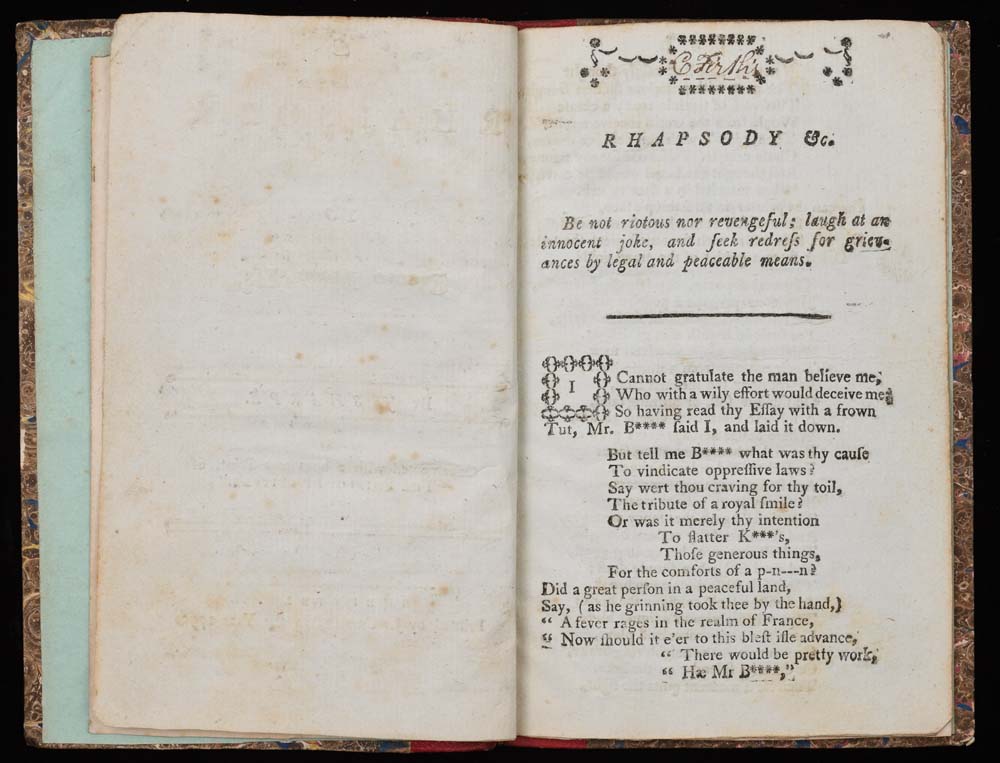 C Firthi
RHAPSODY &c.
Be not riotous nor revengeful; laugh at an
innocent joke, and ſeek redreſs for griev-
ances by legal and peaceable means.
I Cannot gratulate the man believe me,
Who with a wily effort would deceive me;
So having read thy Eſſay with a frown
Tut, Mr. B**** ſaid I, and laid it down.
But tell me B**** what was thy cauſe
To vindicate oppreſſive laws?
Say wert thou craving for thy toil,
The tribute of a royal ſmile?
Or was it merely thy intention
To flatter K***'s,
Thoſe generous things,
For the comforts of a p-n---n?
Did a great perſon in a peaceful land,
Say, (as he grinning took thee by the hand,)
“ A fever rages in the realm of France,
“ Now ſhould it e'er to this bleſt iſle advance,
“ There would be pretty work,
“ Hæ Mr B****,”